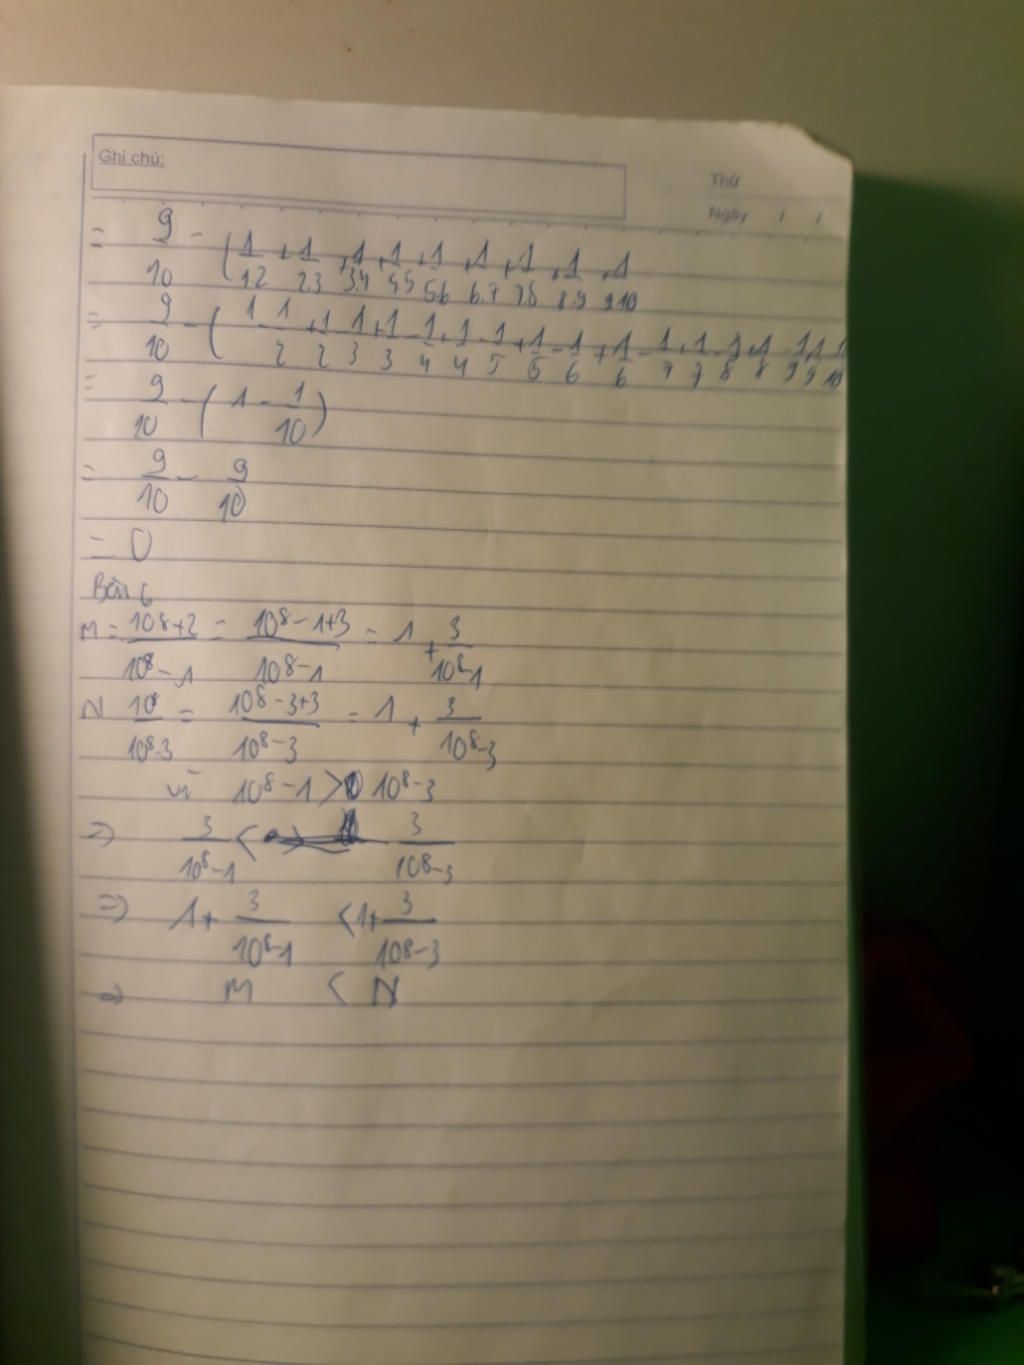 Ghi chú:
Thứ
Ngày / /
= 9/10 - ( 1/1.2 + 1/2.3 + 1/3.4 + 1/4.5 + 1/5.6 + 1/6.7 + 1/7.8 + 1/8.9 + 1/9.10
= 9/10 - ( 1 - 1/2 + 1/2 - 1/3 + 1/3 - 1/4 + 1/4 - 1/5 + 1/5 - 1/6 + 1/6 - 1/7 + 1/7 - 1/8 + 1/8 - 1/9 + 1/9 - 1/10
= 9/10 - ( 1 - 1/10 )
= 9/10 - 9/10
= 0
Bài 6
M = 10⁸+2/10⁸-1 = 10⁸-1+3/10⁸-1 = 1 + 3/10⁸-1
N 10⁸/10⁸-3 = 10⁸-3+3/10⁸-3 = 1 + 3/10⁸-3
vì 10⁸-1 > 10⁸-3
=> 3/10⁸-1 < 3/10⁸-3
=> 1 + 3/10⁸-1 < 1 + 3/10⁸-3
=> M < N